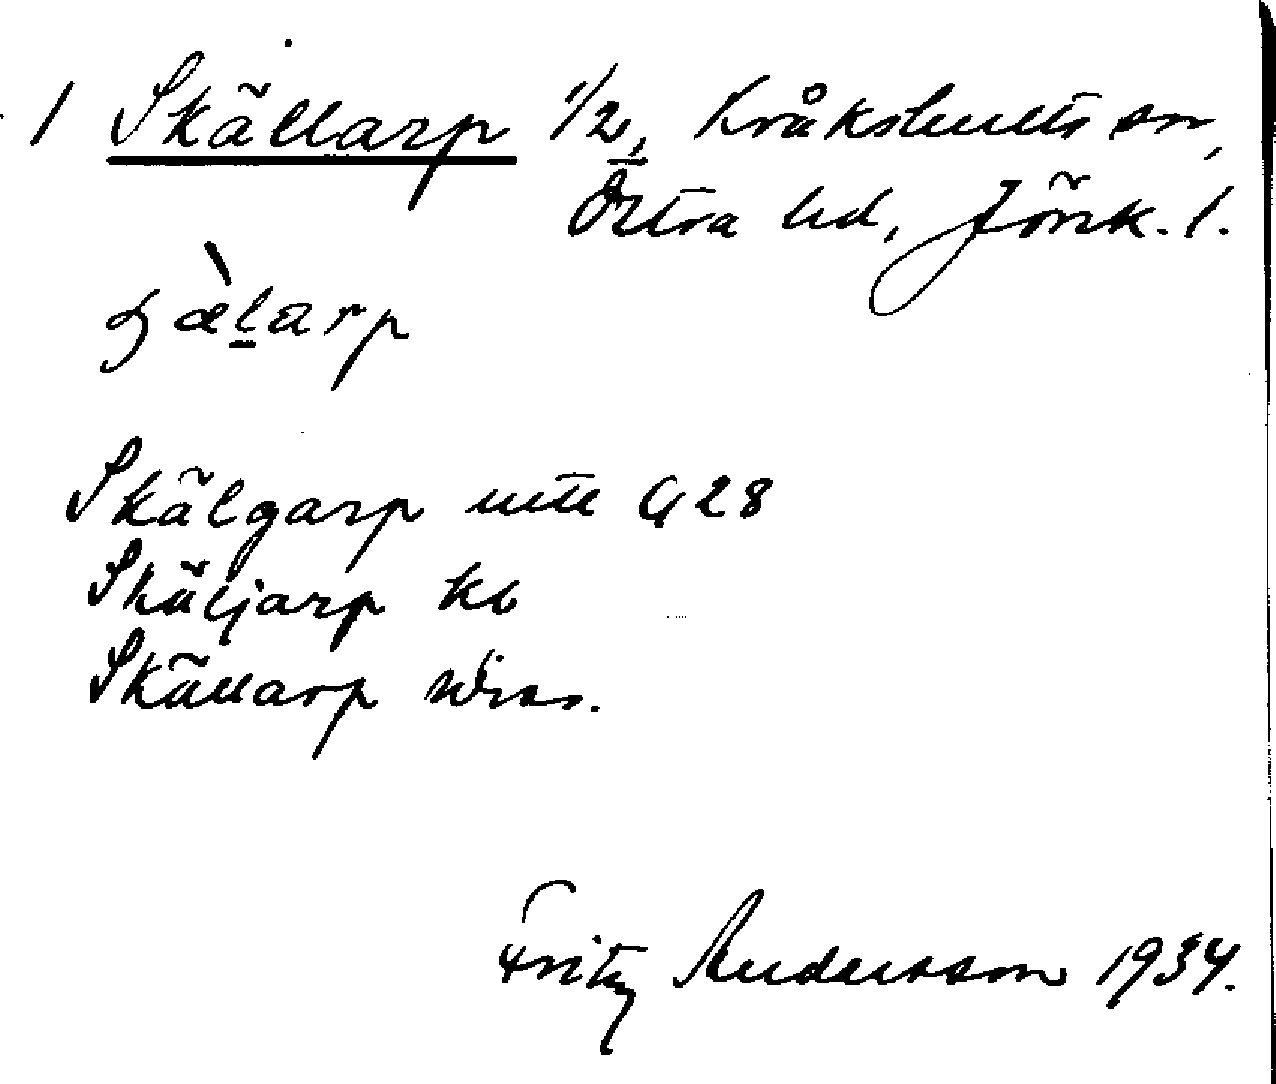 1 Skällarp 1/2, Kråkshults sn,
Östra hd, Jönk. l.
ʓæ̀larp
Skälgarp utt G 28
Skäljarp kb
Skällarp
Fritz Andersson 1934.